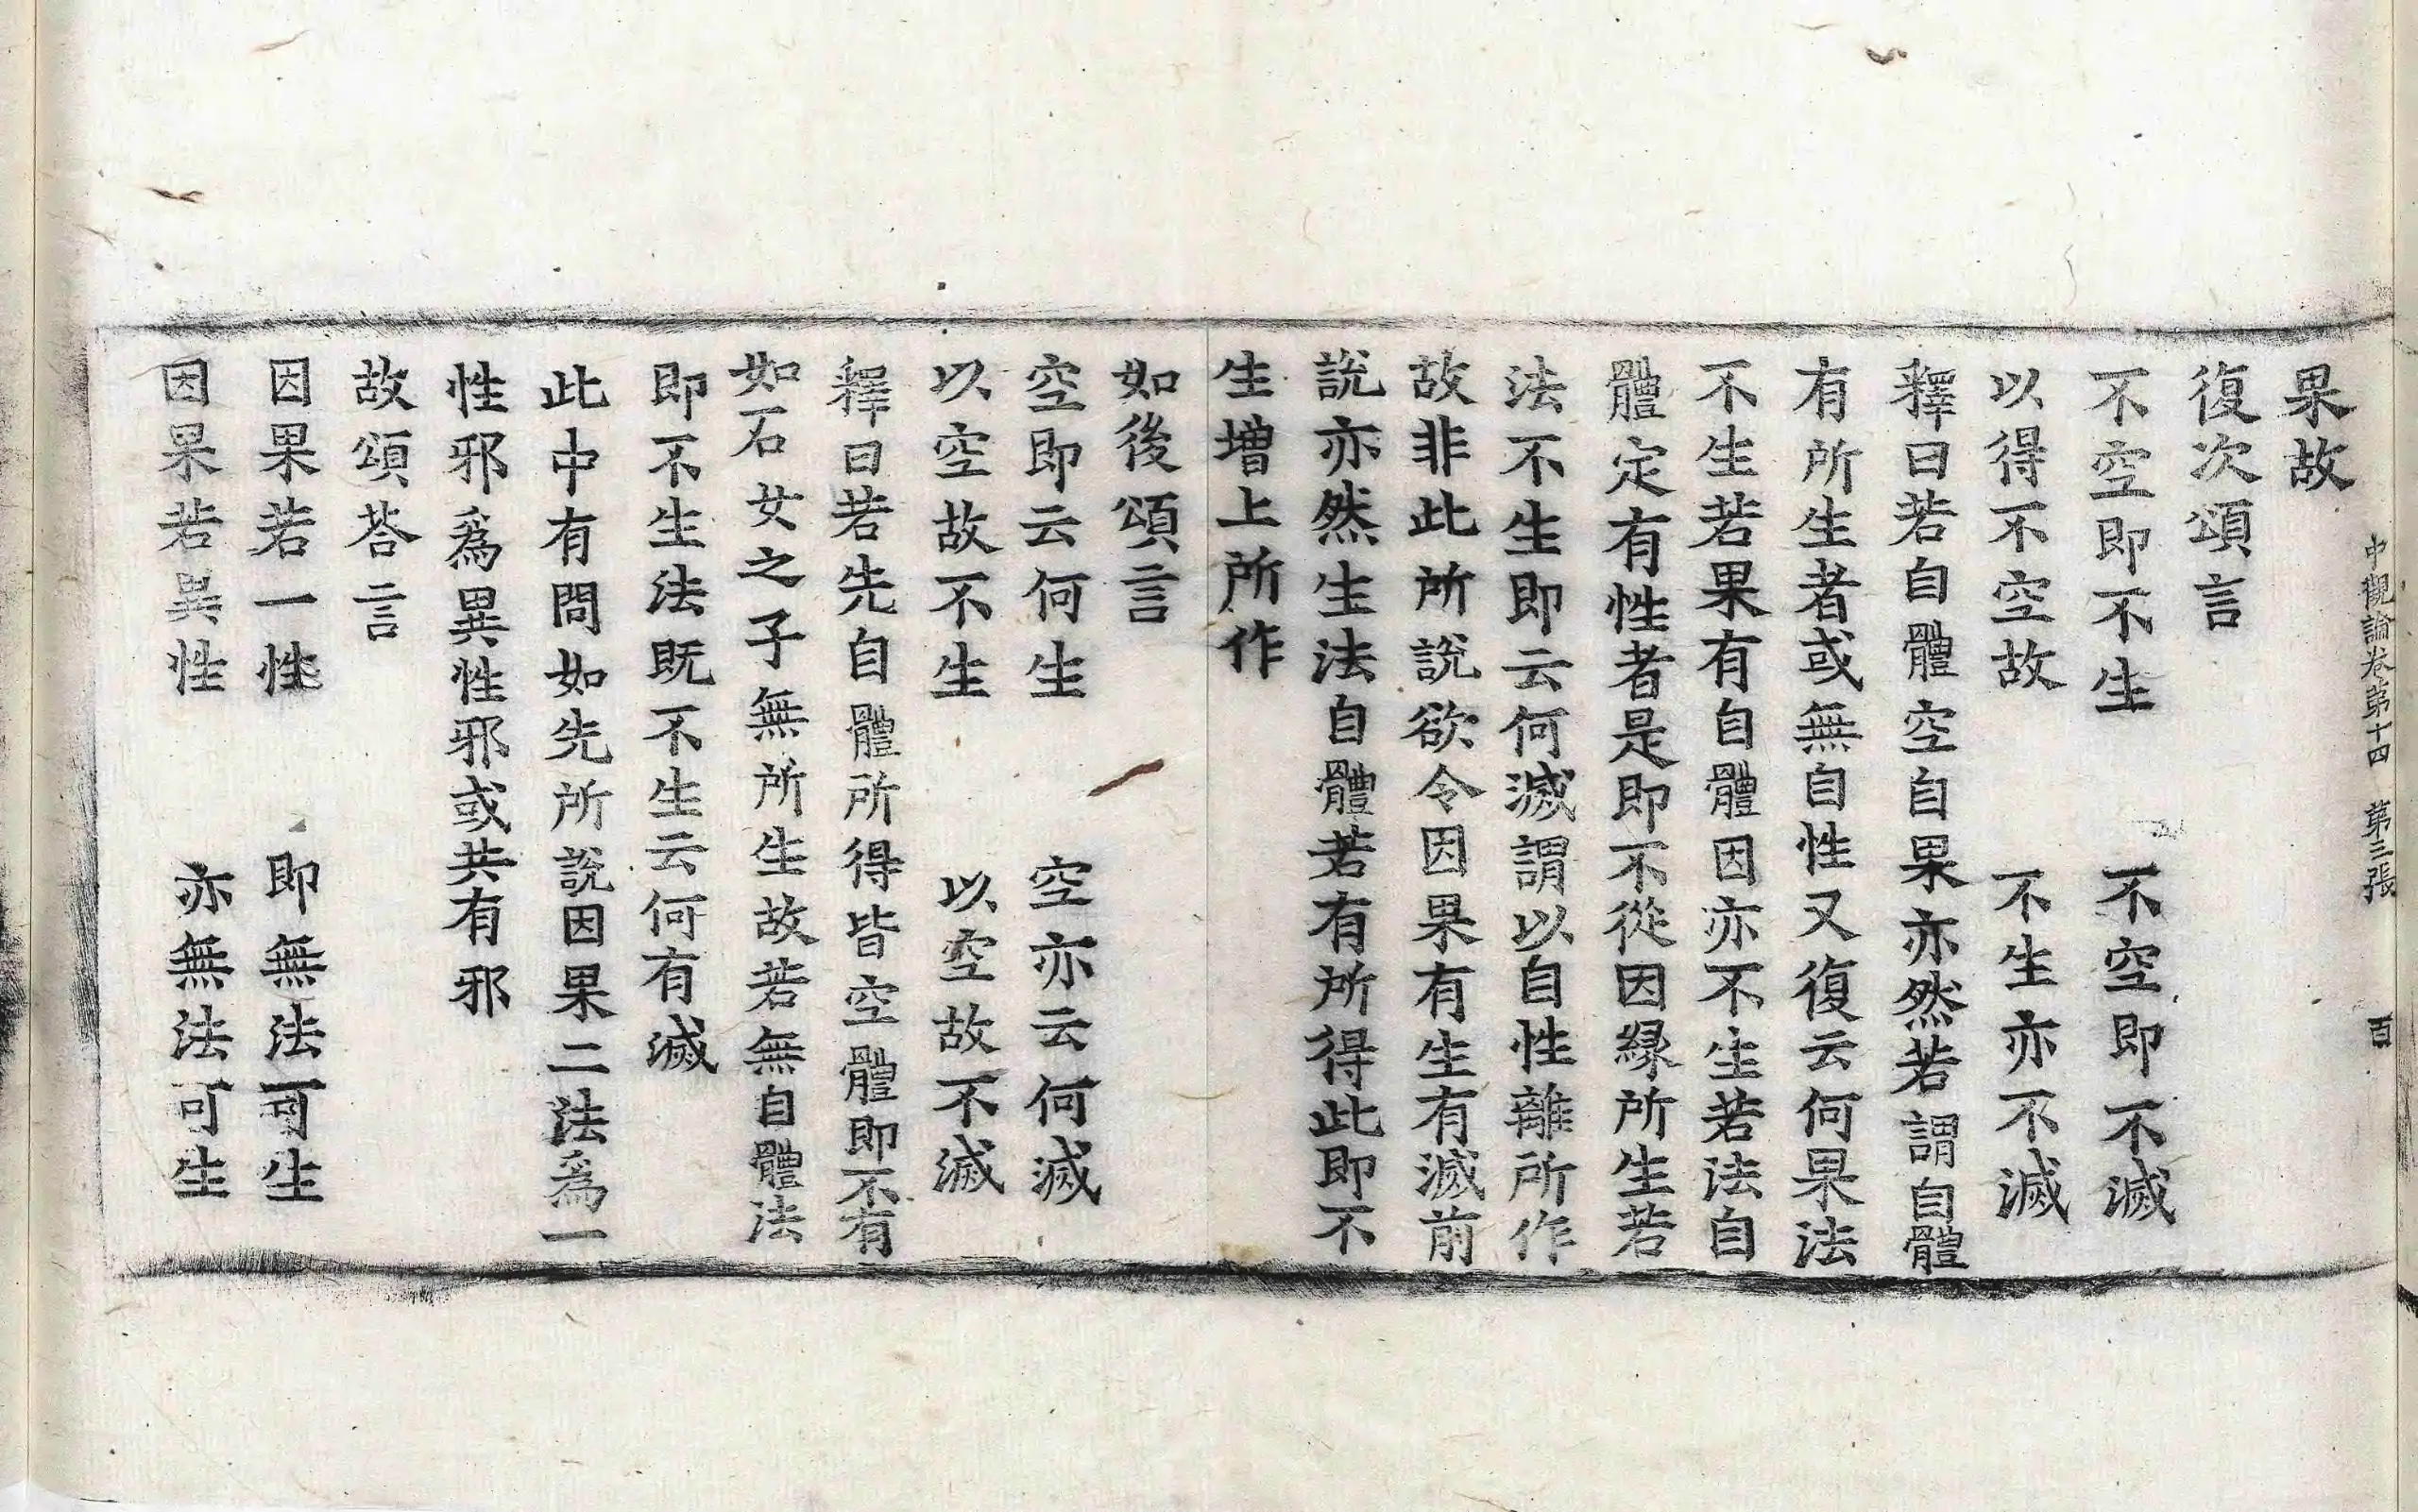 中觀論卷第十四　第三張　百
果故
復次頌言
不空即不生　不空即不滅
以得不空故　不生亦不滅
釋曰若自體空自果亦然若謂自體
有所生者或無自性又復云何果法
不生若果有自體因亦不生若法自
體定有性者是即不從因緣所生若
法不生即云何滅謂以自性離所作
故非此所說欲令因果有生有滅前
說亦然生法自體若有所得此即不
生增上所作
如後頌言
空即云何生　空亦云何滅
以空故不生　以空故不滅
釋曰若先自體所得皆空體即不有
如石女之子無所生故若無自體法
即不生法既不生云何有滅
此中有問如先所說因果二法爲一
性邪爲異性邪或共有邪
故頌荅言
因果若一性　即無法可生
因果若異性　亦無法可生